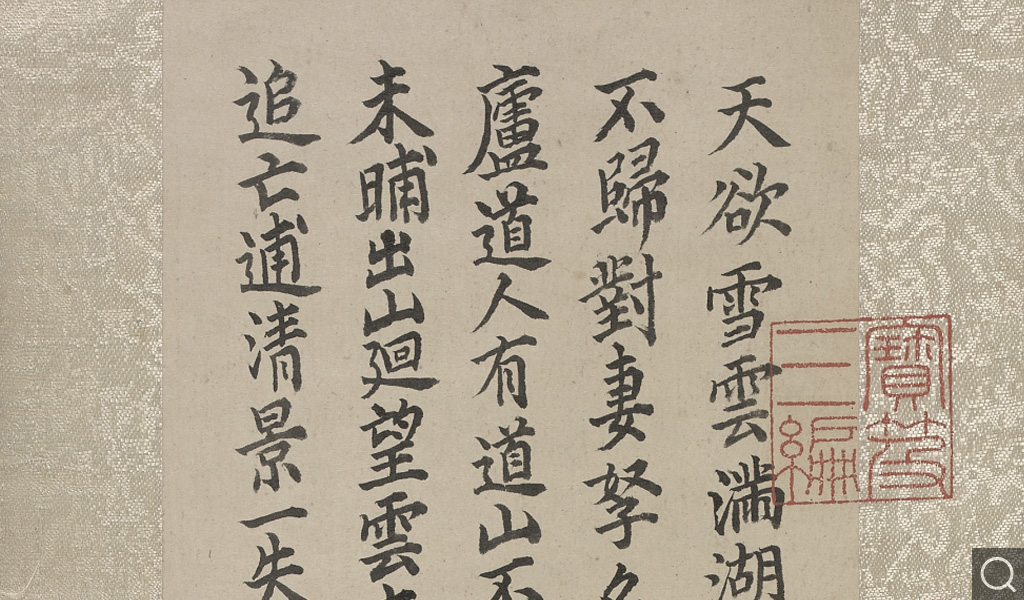 天欲雪雲滿湖
不歸對妻孥名
廬道人有道山不
未晡出山廻望雲
追亡逋清景一失
寶笈
三編